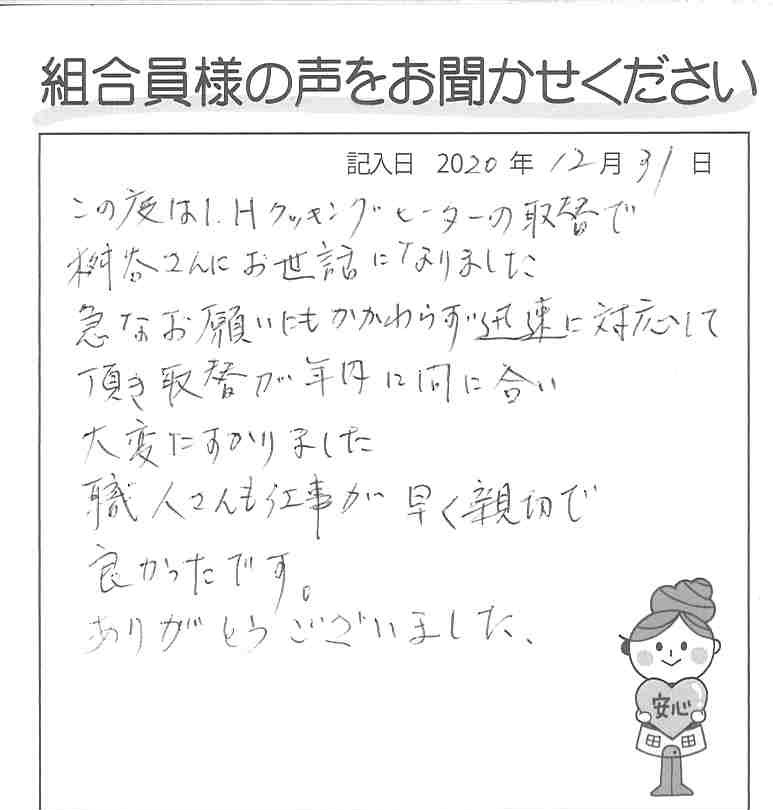 組合員様の声をお聞かせください
記入日 2020年12月31日
この度はI.Hクッキングヒーターの取替で
桝谷さんにお世話になりました
急なお願いにもかかわらず迅速に対応して
頂き取替が年内に間に合い
大変たすかりました
職人さんも仕事が早く親切で
良かったです。
ありがとうございました、
安心